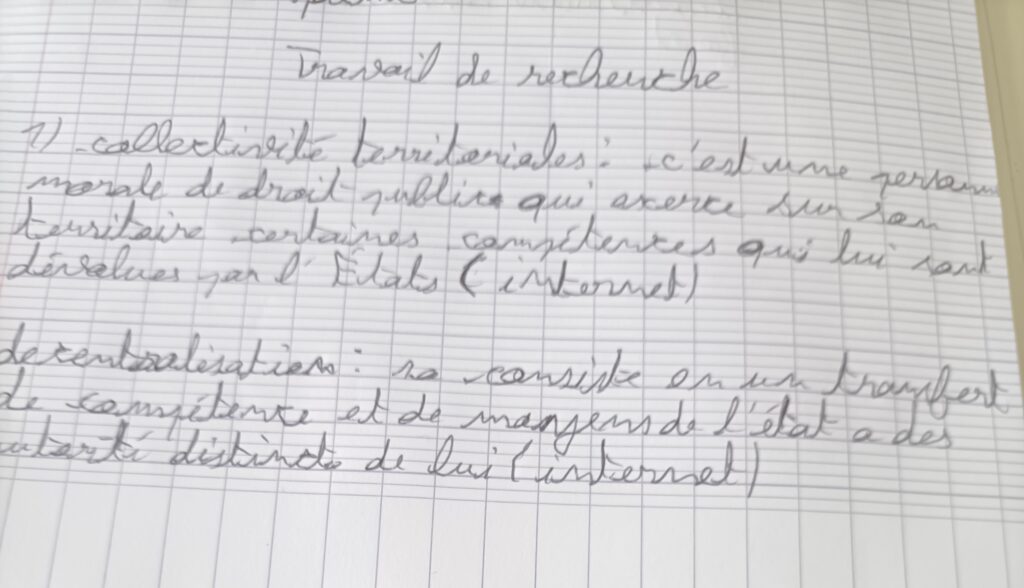 Travail de recherche
1) collectivité territoriales : c'est une personne
morale de droit public qui exerce sur son
territoire certaines compétences qui lui sont
dévolues par l'États (internet)
decentralisation : sa consiste en un transfert
de compétence et de moyens de l'état a des
distinct de lui (internet)